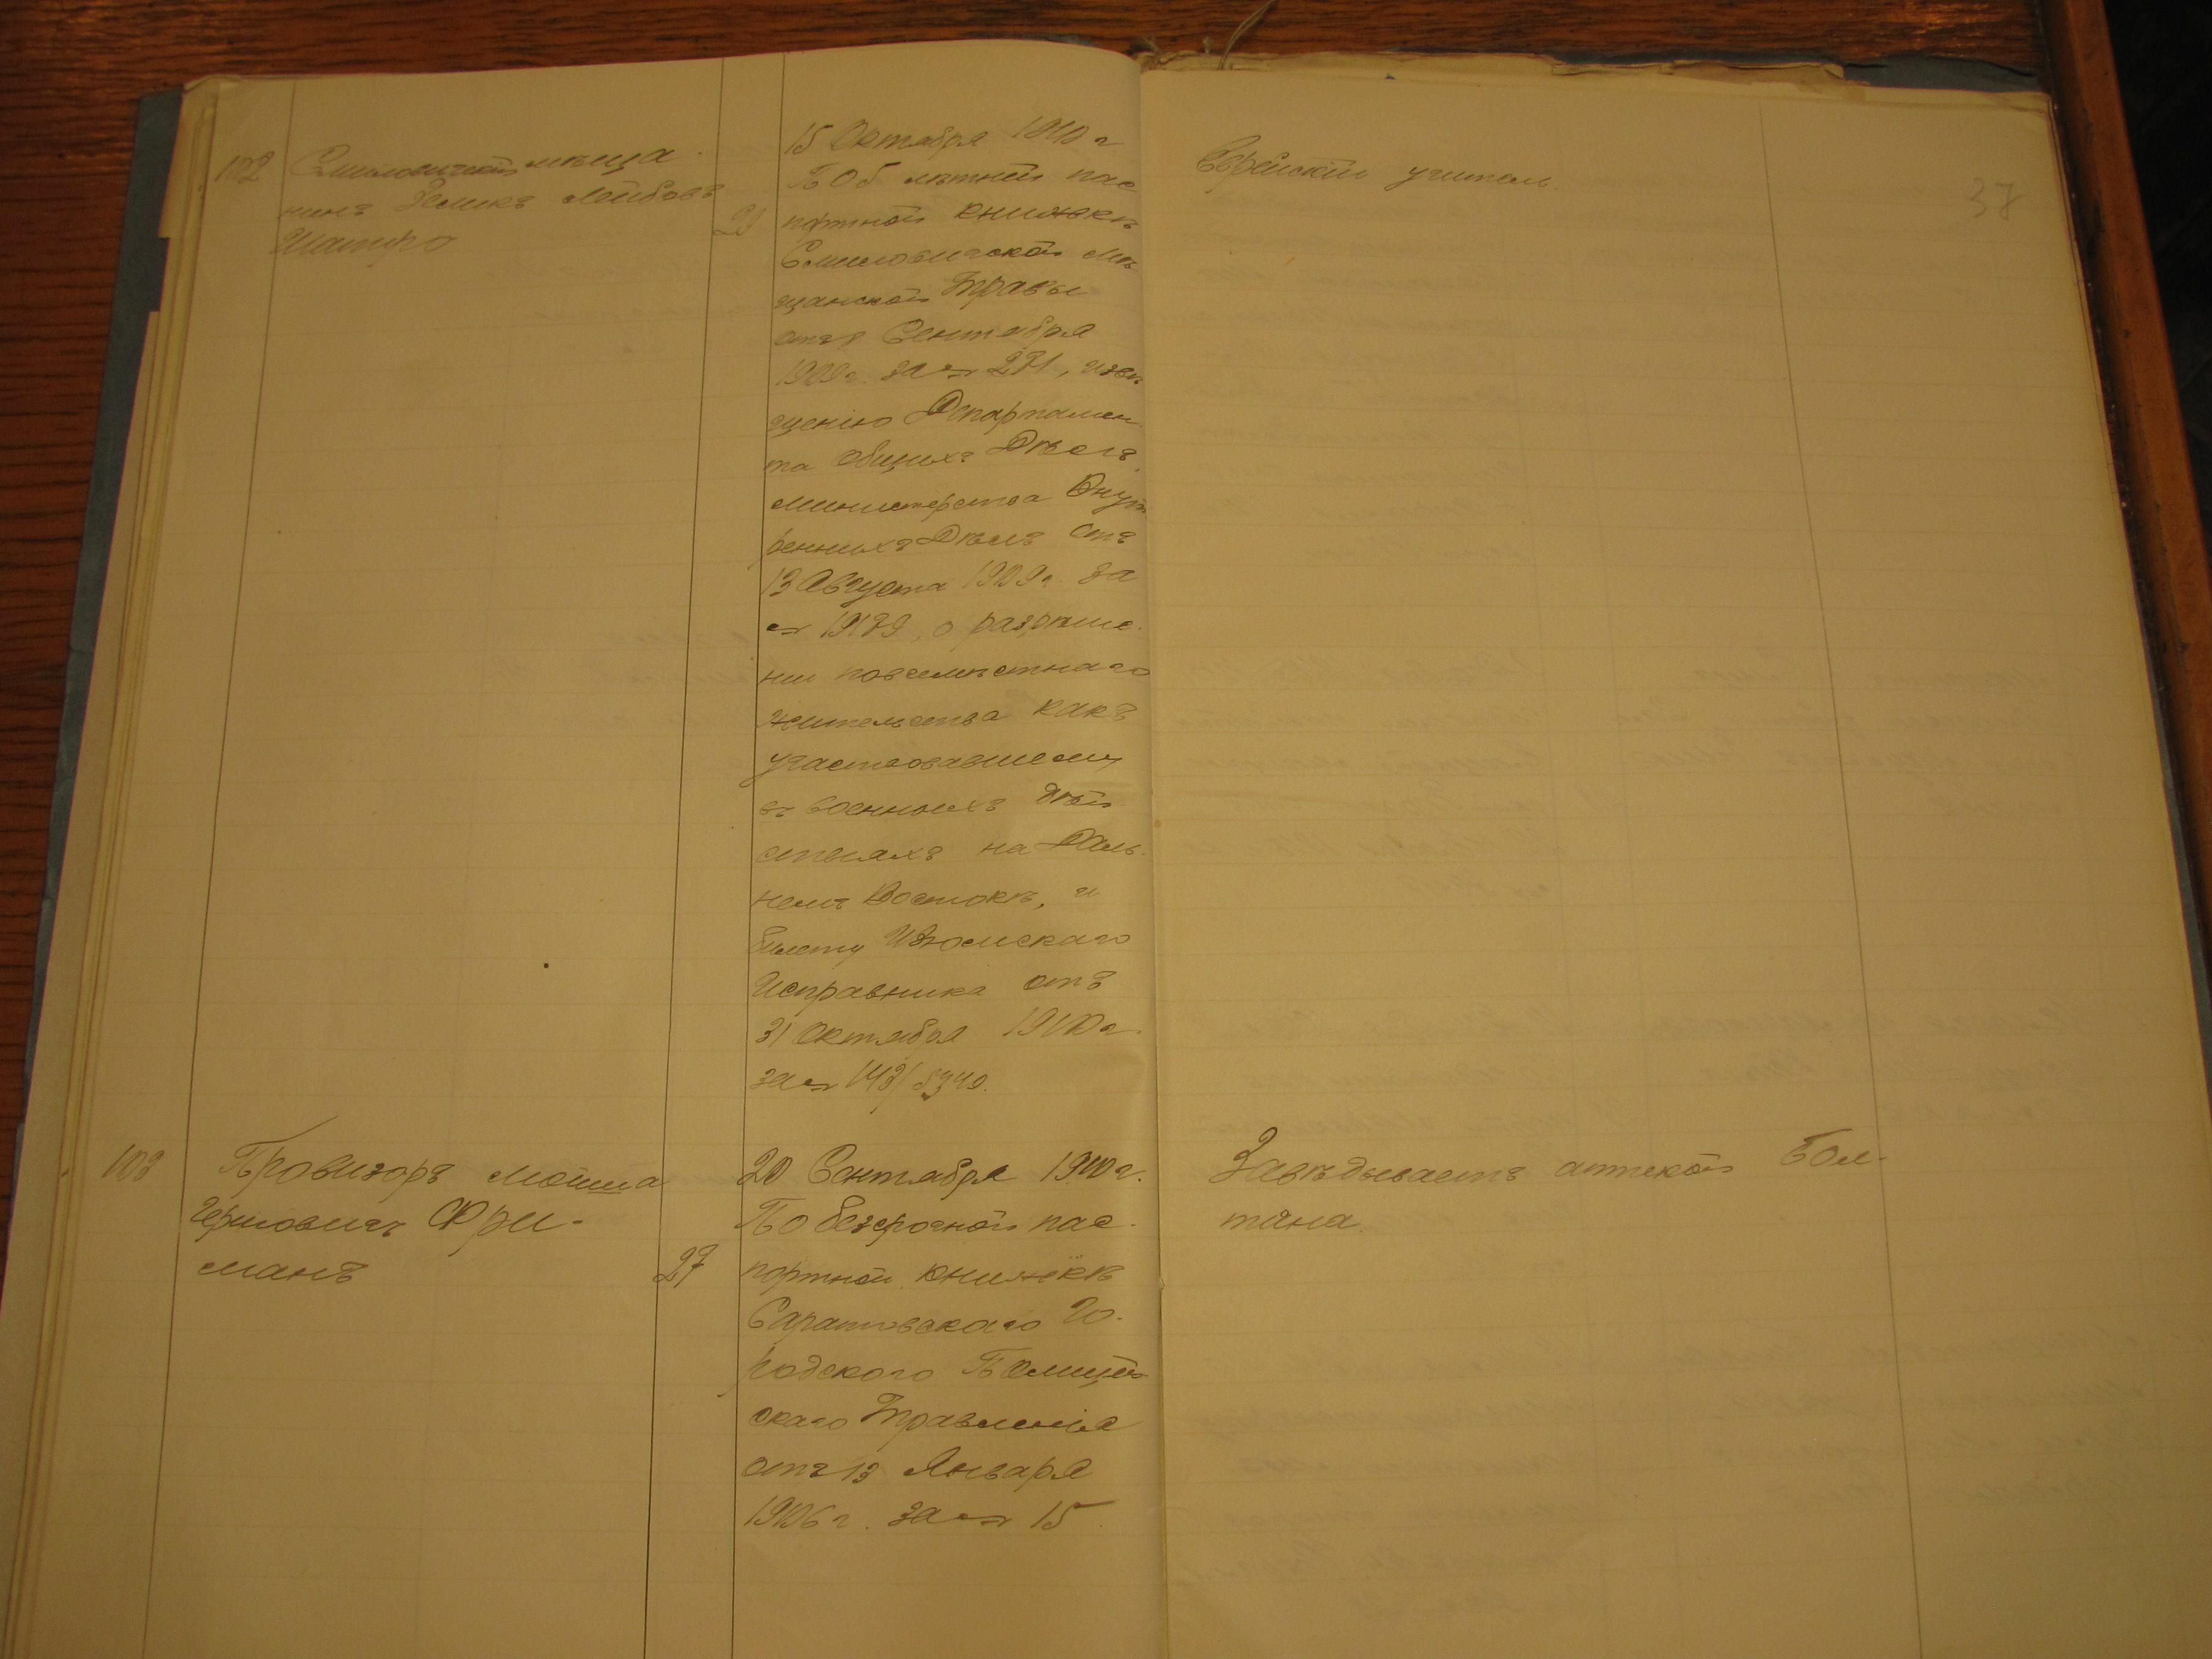 102
Смиловичскій мѣща-
нинъ Зеликъ Лейбовъ
Шапиро
29
15 Октября 1910 г.
По 5 лѣтней пас
портной книжкѣ
Смиловичской Мѣ
щанской Управы
отъ 8 Сентября
1909 г. за № 271, извѣ
щенію Департамен-
та Общихъ Дѣлъ
Министерства Внут
реннихъ Дѣлъ отъ
13 Августа 1909 г. за
№ 19179, о разрѣше-
ніи повсемѣстнаго
жительства какъ
участвовавшему
въ военныхъ дѣй
ствіяхъ на Даль-
немъ Востокѣ, и
билету Изюмскаго
Исправника отъ
31 Октября 1910 г.
за № 143/8340.
Еврейскій учитель.
37
103
Провизоръ Мойша
Герцовичъ Фри-
манъ
27
20 Сентября 1910 г.
По безсрочной пас-
портной книжкѣ
Саратовскаго Го-
родского Полицей
скаго Управленія
отъ 13 Января
1906 г. за № 15
Завѣдываетъ аптекой Бол-
тяна.